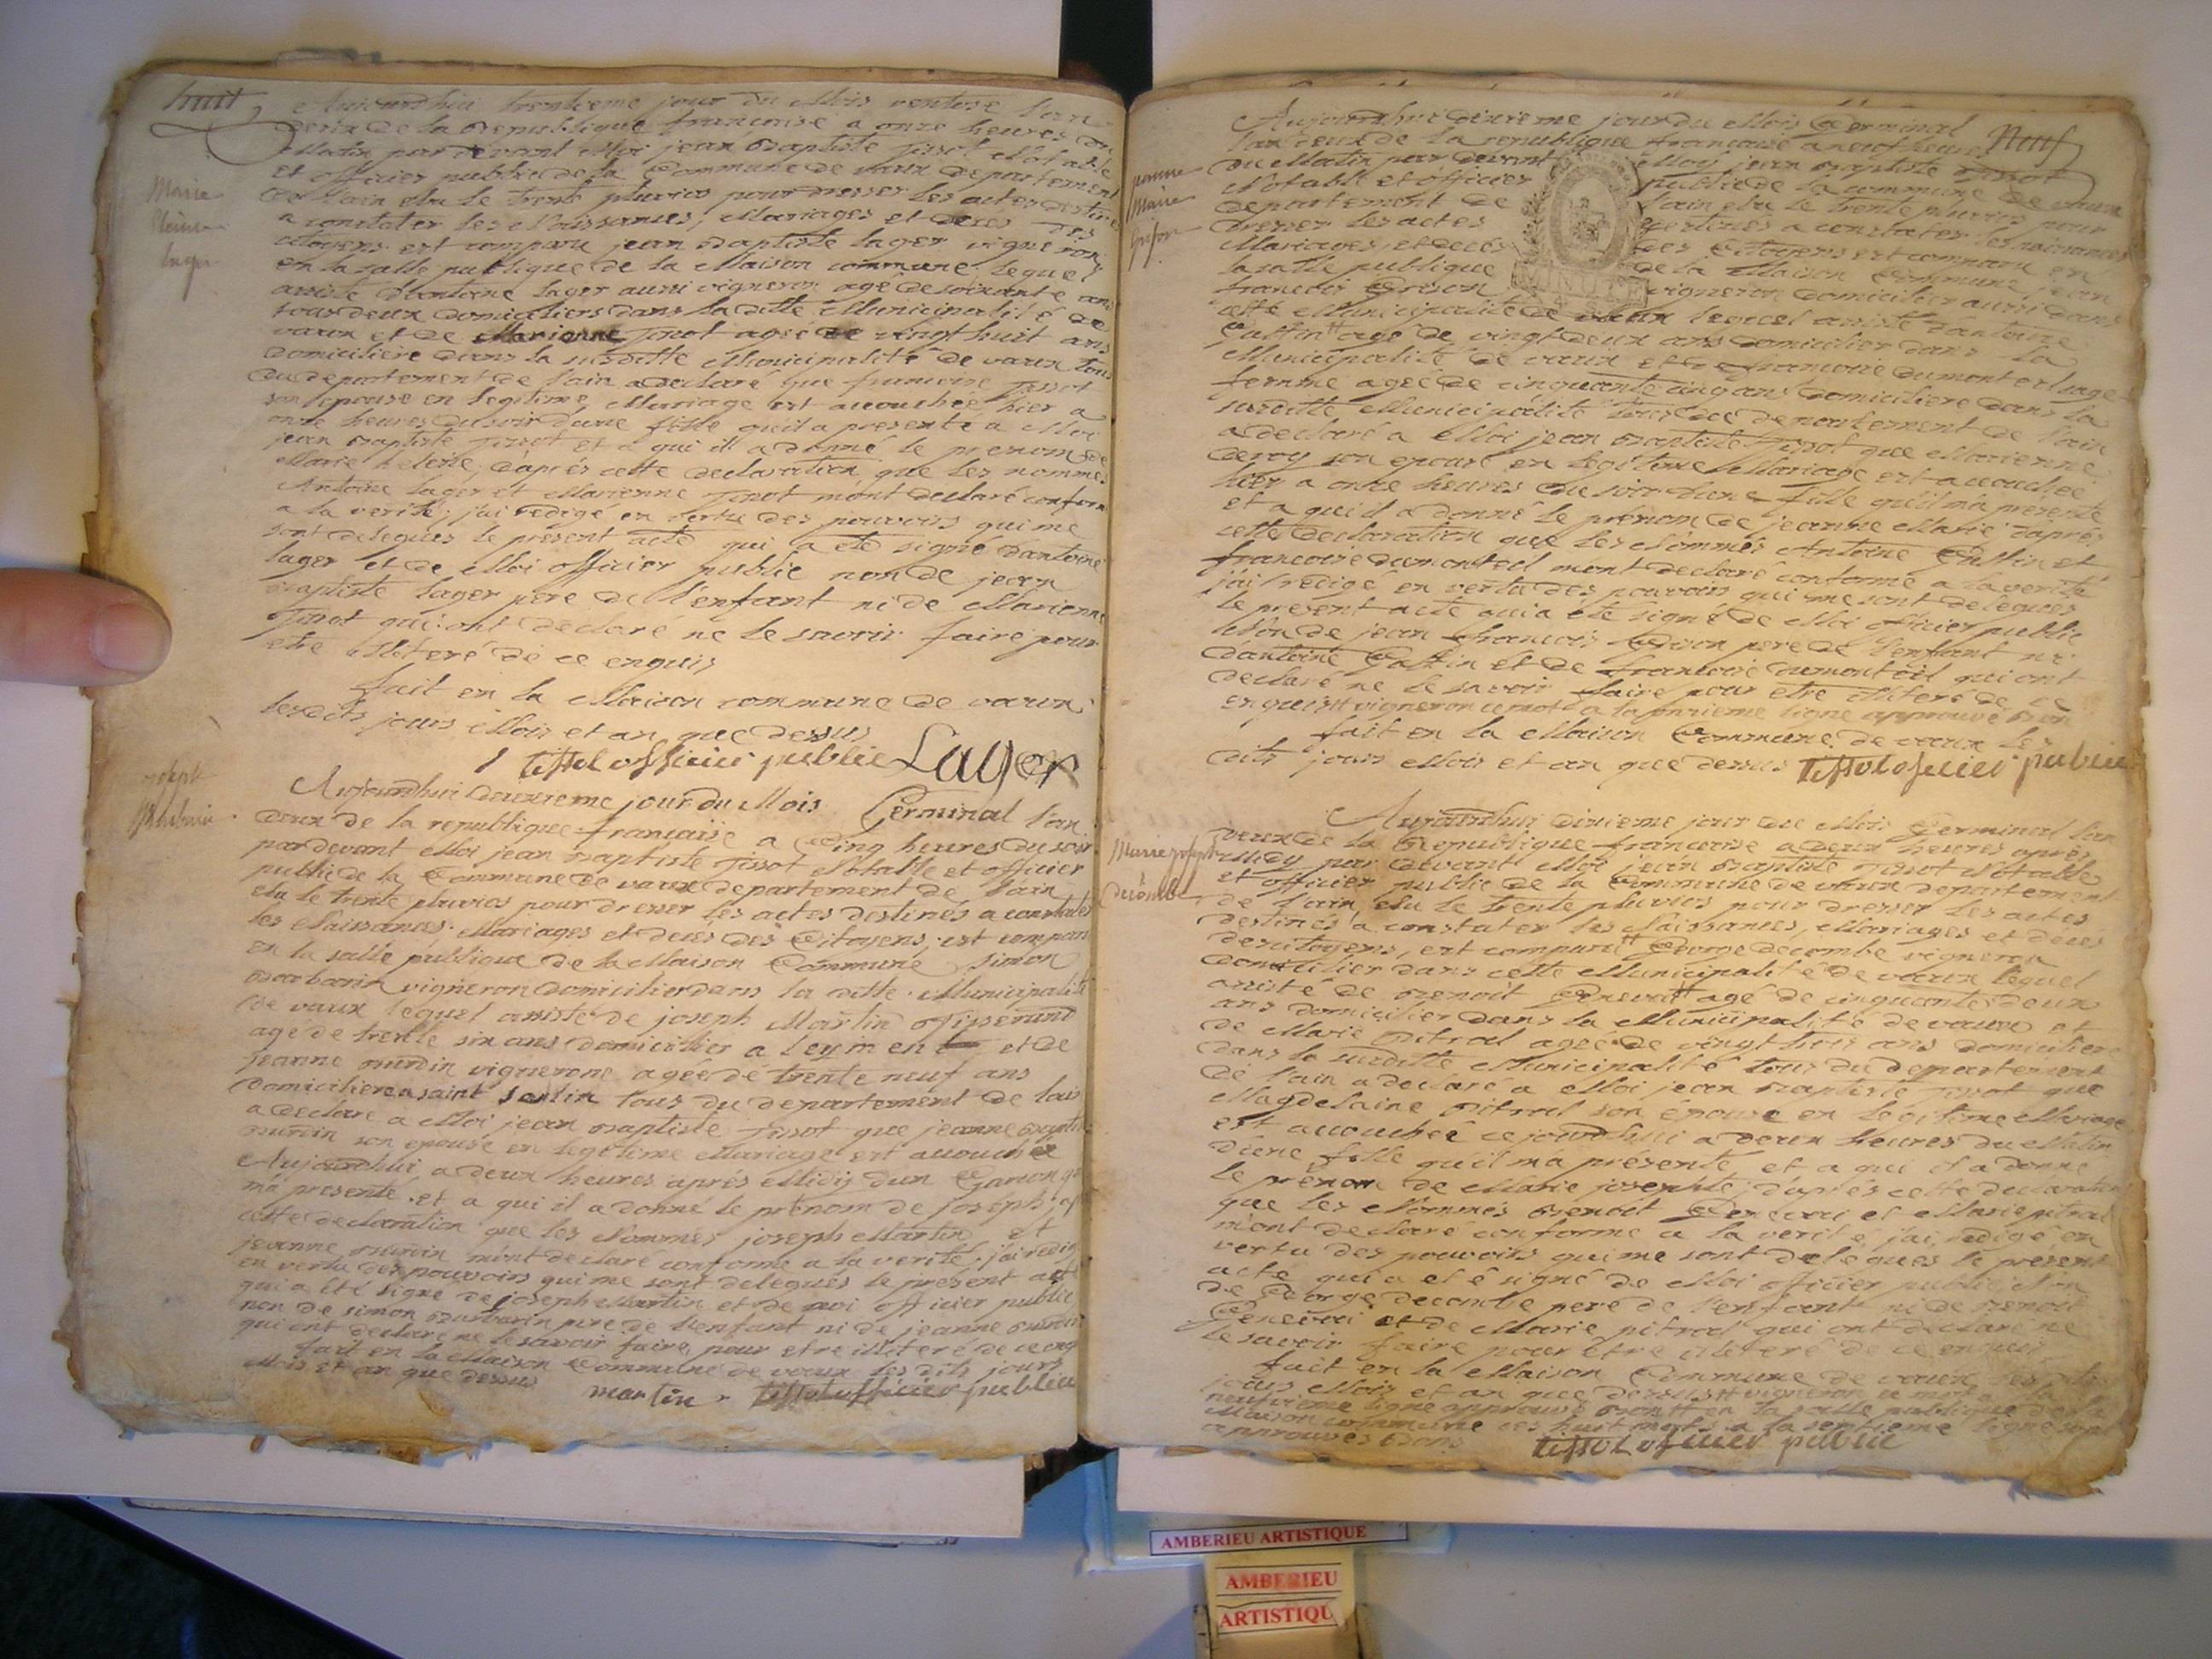 huit
Aujourdhui trentieme jour du Mois ventose l'an
deux de la Republique françoise a onze heures du
Matin par devant Moi jean Baptiste Tissot Notable
et officier public de la Commune de vaux departement
de l'ain elu le trente pluvios pour dresser les actes destinés
a constater les Naissances, Mariages et decés des
citoyens est comparu jean Baptiste lager vigneron
en la salle publique de la Maison commune lequel
assisté d'antoine lager aussi vigneron agé de soixante ans
tous deux domiciliers dans la ditte Municipalité de
vaux et de Marienne Tissot ageé de vingt huit ans
domiciliere dans la susditte Municipalité de vaux tous
du departement de l'ain a declaré que francoise Tissot
son epouse en legitime Mariage est accouchée hier a
onze heures du soir d'une fille qu'il a presenté a Moi
jean Baptiste Tissot et a qui il a donné le prenom de
Marie helene, d'aprés cette declaration que les nommés
Antoine lager et Marienne Tissot m'ont declaré conforme
a la verité, j'ai redigé en vertu des pouvoirs qui me
sont delegués le présent acte qui a eté signé d'antoine
lager et de Moi officier public non de jean
Baptiste lager pere de l'enfant ni de Marienne
Tissot qui ont declaré ne le savoir faire pour
etre illiteré de ce enquis
fait en la Maison commune de vaux
lesdits jours Mois et an que dessus
Tissot officier public Lager
Marie
helene
lager
joseph
Barbarin
Aujourdhui deuxieme jour du Mois Germinal l'an
deux de la republique française a Cinq heures du soir
par devant Moi jean Baptiste Tissot Notable et officier
public de la Commune de vaux departement de l'ain
elu le trente pluvios pour dresser les actes destinés a constater
les Naissances, Mariages et decés des Citoyens, est comparu
en la salle publique de la Maison Commune Simon
Barbarin vigneron domicilier dans la ditte Municipalité
de vaux lequel assisté de joseph Martin
agé de trente six ans domicilier a leyment et de
jeanne vignerone agée de trente neuf ans
domiciliere a saint Sorlin tous du departement de l'ain
a declaré a Moi jean Baptiste Tissot que jeanne
son epouse en legitime Mariage est accouchée
Aujourdhui a deux heures aprés Midy d'un Garçon
m'a presenté et a qui il a donné le prenom de joseph
cette declaration que les Nommés joseph Martin et
jeanne m'ont declaré conforme a la verité j'ai redigé
en vertu des pouvoirs qui me sont delegués le present acte
qui a eté signé de joseph Martin et de moi officier public
non de simon Barbarin pere de l'enfant ni de jeanne
qui ont declaré ne le savoir faire pour etre illiteré de ce enq
fait en la Maison Commune de vaux les dits jours
Mois et an que dessus
martin Tissot officier public
Neuf
Aujourdhui dixieme jour du Mois Germinal
l'an deux de la republique française a neuf heures
du Matin par devant Moy jean Baptiste Tissot
Notable et officier public de la commune de vaux
departement de l'ain elu le trente pluvios pour
dresser les actes destinés a constater les naissances
Mariages et decés des Citoyens est comparu en
la salle publique de la Maison Commune jean
francois Grison vigneron domicilier aussi dans
cette Municipalité de vaux lequel assisté d'antoine
agé de vingt deux ans domicilier dans la
Municipalité de vaux et de francoise
femme ageé de cinquante cinq ans domiciliere dans la
susditte Municipalité tous du departement de l'ain
a declaré a Moi jean Baptiste Tissot que Marienne
son epouse en legitime Mariage est accouchée
hier a onze heures du soir d'une fille qu'il m'a presenté
et a qui il a donné le prénom de jeanne Marie d'aprés
cette declaration que les Nommés Antoine et
francoise m'ont declaré conforme a la verité
j'ai redigé en vertu des pouvoirs qui me sont delegués
le present acte qui a eté signé de Moi officier public
Non de jean francois Grison pere de l'enfant ni
d'antoine et de francoise qui ont
declaré ne le savoir faire pour etre illiteré de ce
enquis vigneron ce mot a la onzieme ligne approuvé Bon
fait en la Maison Commune de vaux les
dits jours Mois et an que dessus Tissot officier public
jeanne
Marie
Grison
MINUTE
Marie joseph
Decombe
Aujourdhui dixieme jour du Mois Germinal l'an
deux de la Republique francoise a deux heures aprés
Midy par devant Moi jean Baptiste Tissot Notable
et officier public de la Commune de vaux departement
de l'ain elu le trente pluvios pour dresser les actes
destinés a constater les Naissances, Mariages et décés
des citoyens, est comparu George decombe vigneron
domicilier dans cette Municipalité de vaux lequel
assisté de Benoit agé de cinquante deux
ans domicilier dans la Municipalité de vaux et
de Marie pitral ageé de vingt trois ans domiciliere
dans la susditte Municipalité tous du departement
de l'ain a declaré a Moi jean Baptiste Tissot que
Magdelaine pitral son épouse en legitime Mariage
est accouchée ce jourdhui a deux heures du Matin
d'une fille qu'il m'a présenté et a qui il a donné
le prénom de Marie josephte, d'aprés cette declaration
que les Nommés Benoit et Marie pitral
m'ont declaré conforme a la verité j'ai redigé en
vertu des pouvoirs qui me sont delegués le present
acte qui a eté signé de Moi officier public Non
de George decombe pere de l'enfant ni de Benoit
et de Marie pitral qui ont declaré ne
le savoir faire pour etre illiteré de ce enquis
fait en la Maison Commune de vaux les dits
jours Mois et an que dessus vigneron ce mot a la
neufvieme ligne approuvé Bon en la salle publique de la
Maison commune ces huit mots a la septieme ligne sont
approuvés Bons Tissot officier public
AMBERIEU ARTISTIQUE
AMBERIEU
ARTISTIQU